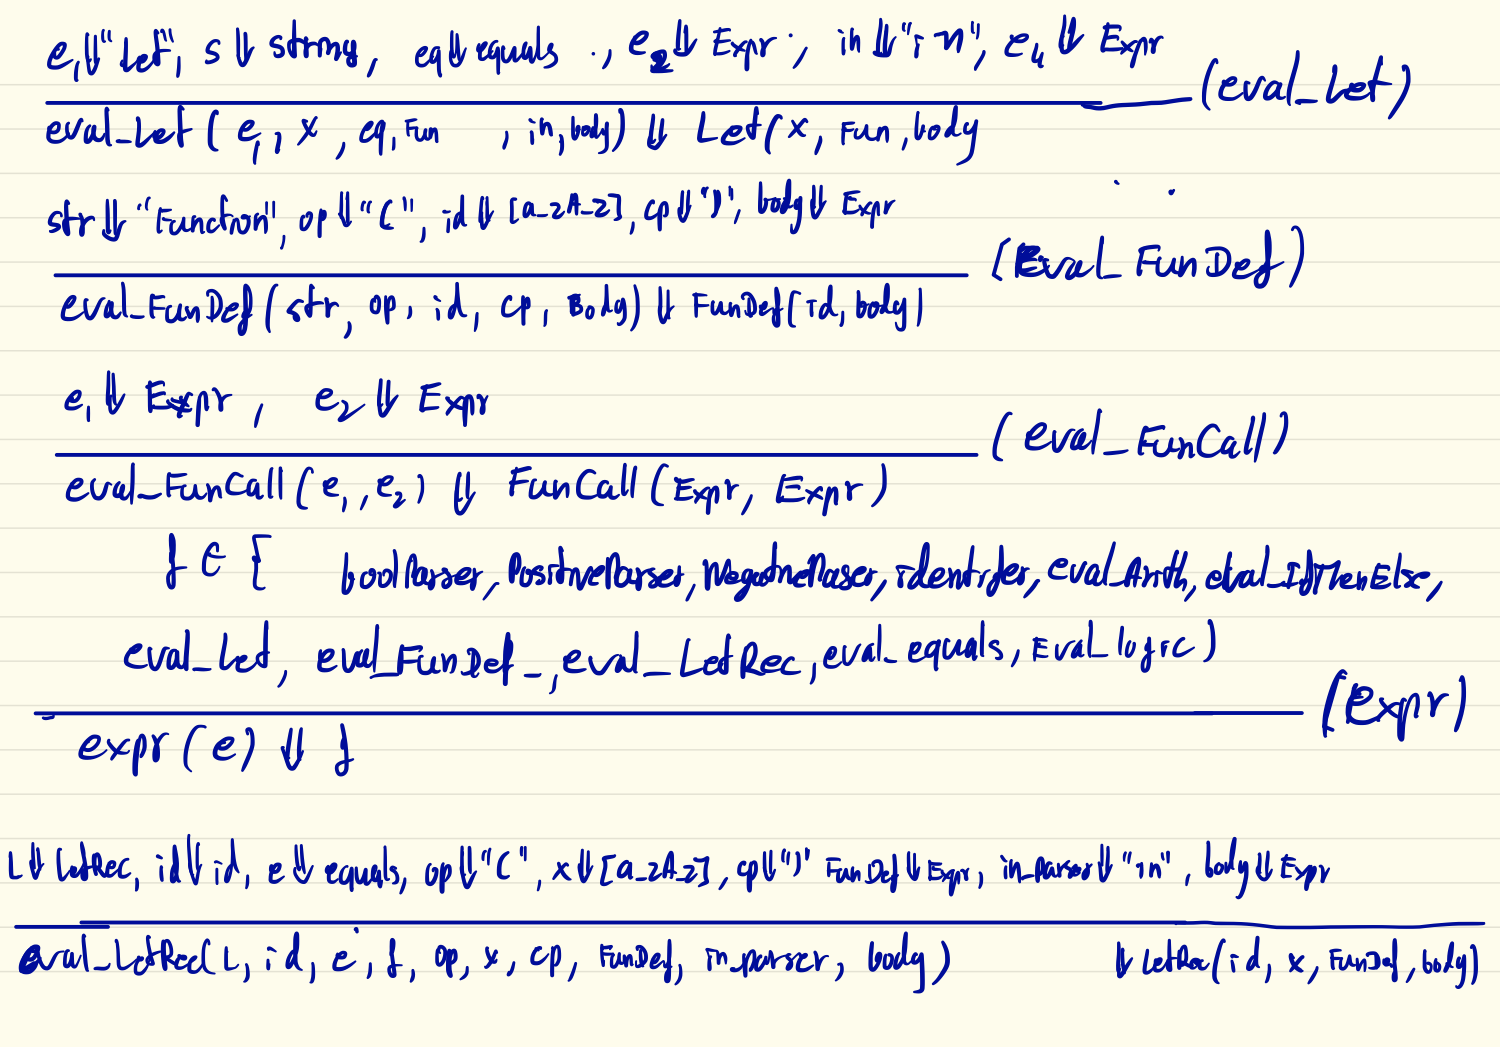 e₁ ⇓ "Let", s ⇓ string, eq ⇓ equals ., e₂ ⇓ Expr, in ⇓ "in", e₄ ⇓ Expr
(eval_Let)
eval_Let ( e₁, x, eq, Fun , in, body) ⇓ Let(x, Fun, body
str ⇓ "Function", op ⇓ "(", id ⇓ [a_zA_Z], cp ⇓ ")", body ⇓ Expr
(Eval_FunDef)
eval_FunDef(str, op, id, cp, Body) ⇓ FunDef(id, body)
e₁ ⇓ Expr, e₂ ⇓ Expr
(eval_FunCall)
eval_FunCall(e₁, e₂) ⇓ FunCall(Expr, Expr)
f ∈ { boolParser, PositiveParser, NegativeParser, identifer, eval_Arith, eval_IfThenElse,
eval_Let, eval_FunDef_, eval_LetRec, eval_equals, Eval_logic)
(Expr)
expr(e) ⇓ f
L ⇓ LetRec, id ⇓ id, e ⇓ equals, op ⇓ "(", x ⇓ [a_zA_Z], cp ⇓ ")" FunDef ⇓ Expr, in_parser ⇓ "in", body ⇓ Expr
eval_LetRec(L, id, e, f, op, x, cp, FunDef, in_parser, body) ⇓ LetRec(id, x, FunDef, body)